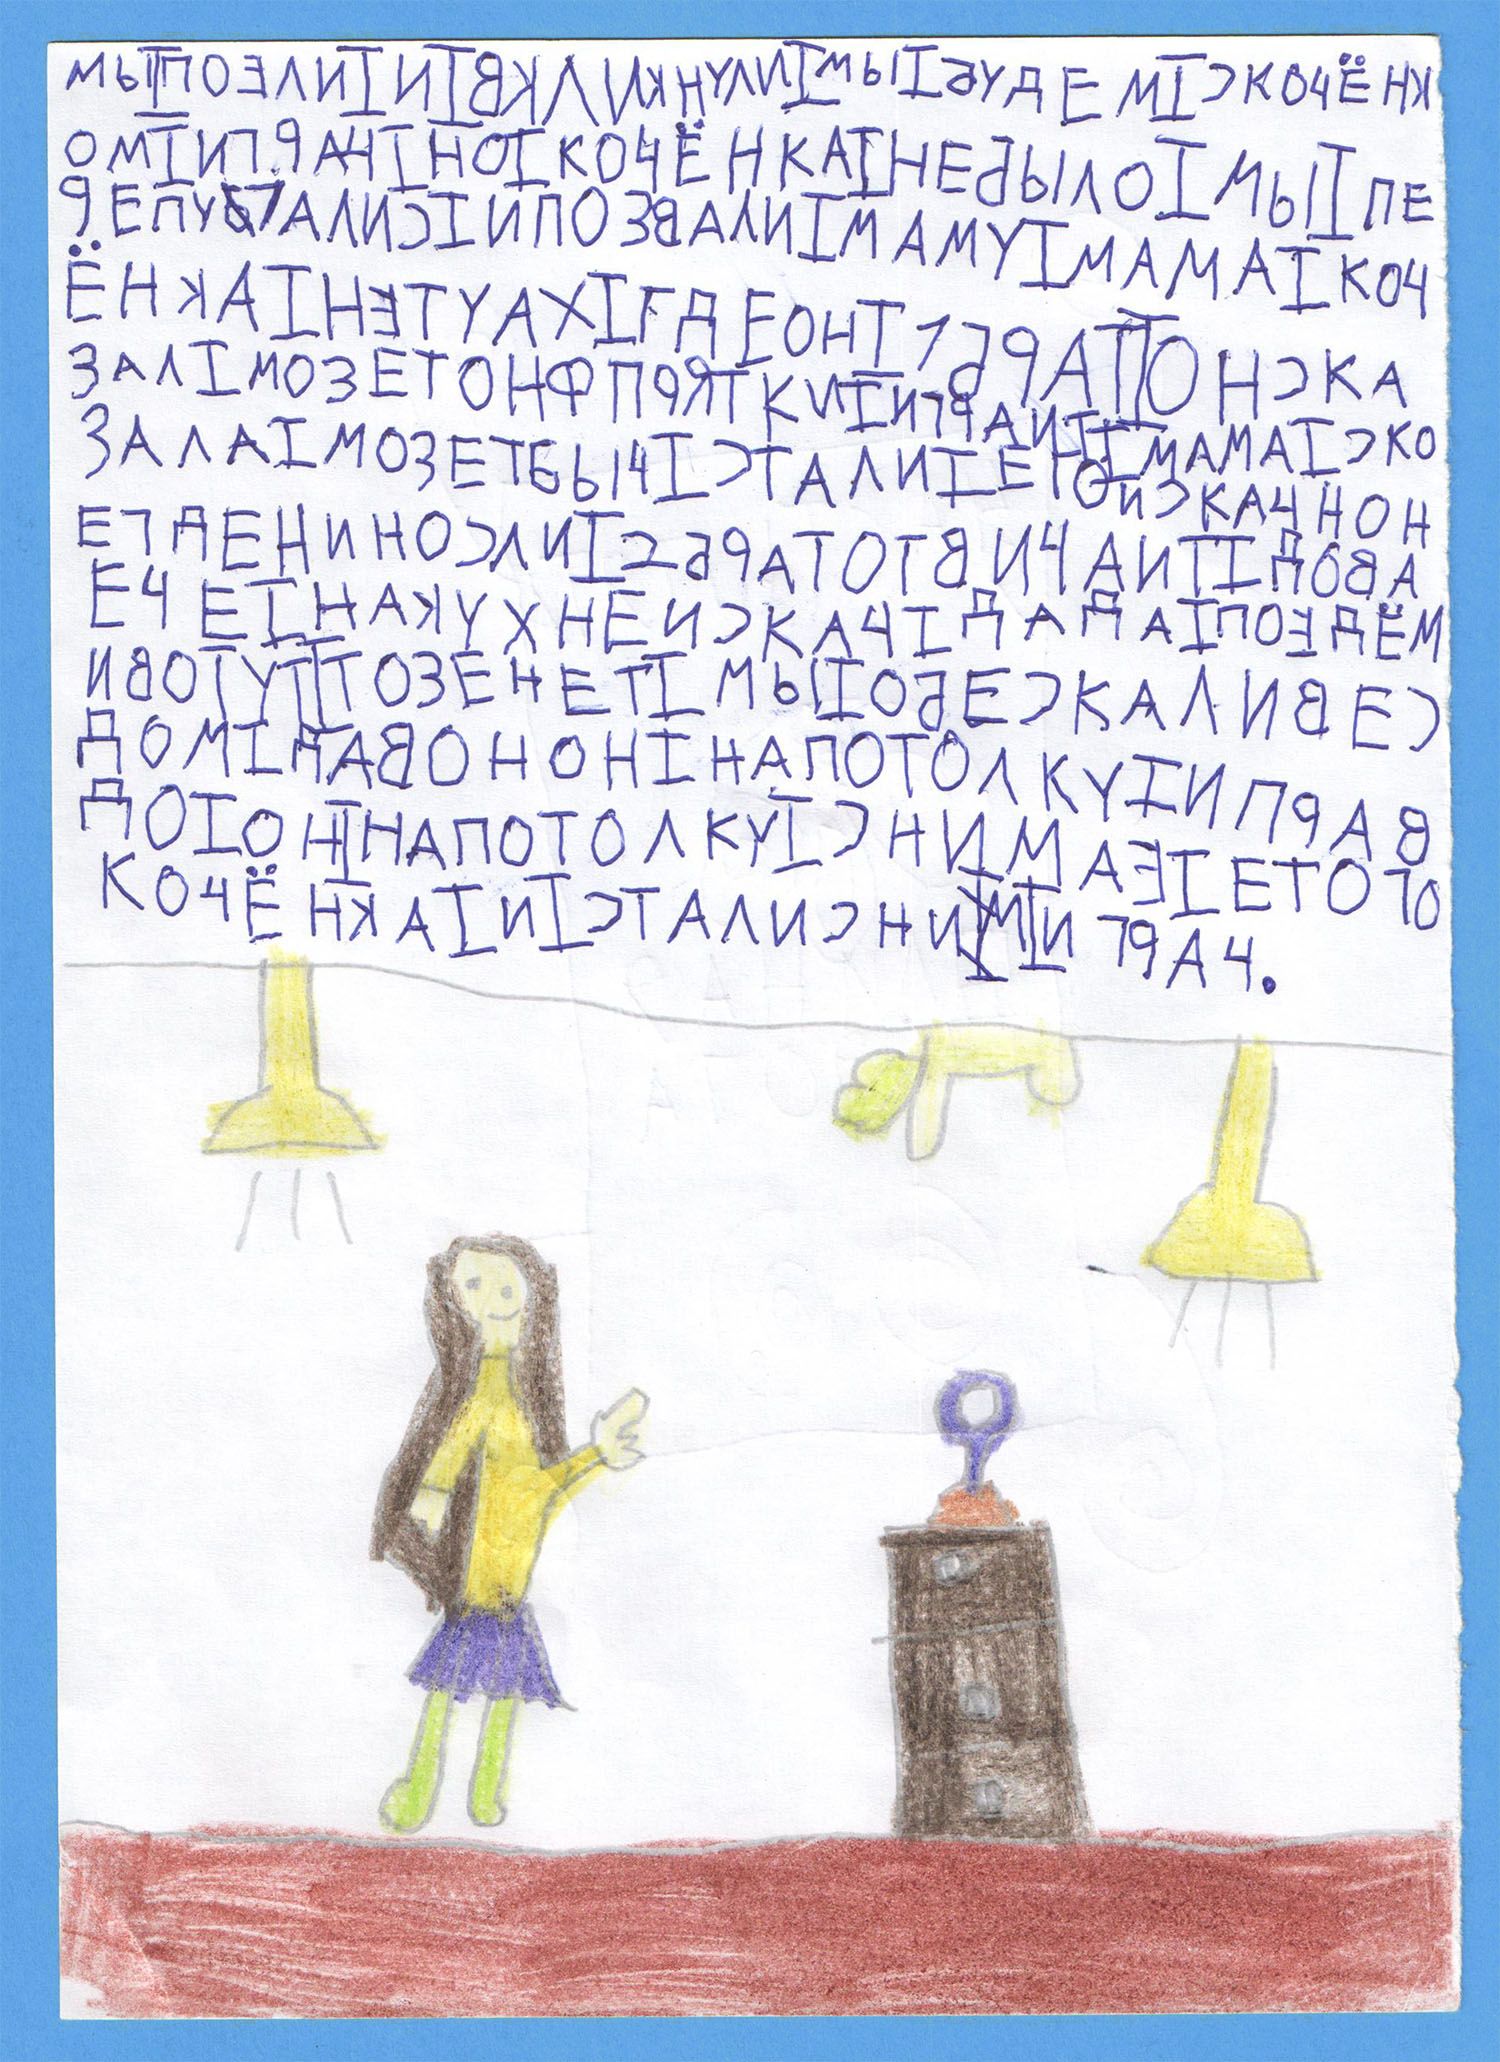 МЫIПОЭЛИIИIВКЛИКНУЛИIМЫIБУДЕМIСКОЧЁНК
ОМIИГРАЧIНОIКОЧЁНКАIНЕБЫЛОIМЫIПЕ
РЕПУГАЛИСIИПОЗВАЛИIМАМУIМАМАIКОЧ
ЁНКАIНЭТУАХIГДЕОНI1БРАТIОНСКА
ЗАЛIМОЗЕТОНФПРЯТКИIИГРАИТIМАМАIСКО
ЗАЛАIМОЗЕТБЫЧIСТАЛИIЕГОИСКАЧНОН
ЕГДЕНИНОСЛИI2БРАТОТВИЧАИТIДОВА
ЕЧЕIНАКУХНЕИСКАЧIДАДАIПОЭДЁМ
ИВОТУТIТОЗЕНЕТIМЫIОБЕСКАЛИВЕС
ДОМIДАВОНОНIНАПОТОЛКУIИПРАВ
ДОIОНIНАПОТОЛКУIСНИМАЭIЕТОГО
КОЧЁНКАIИIСТАЛИСНИМIИГРАЧ.